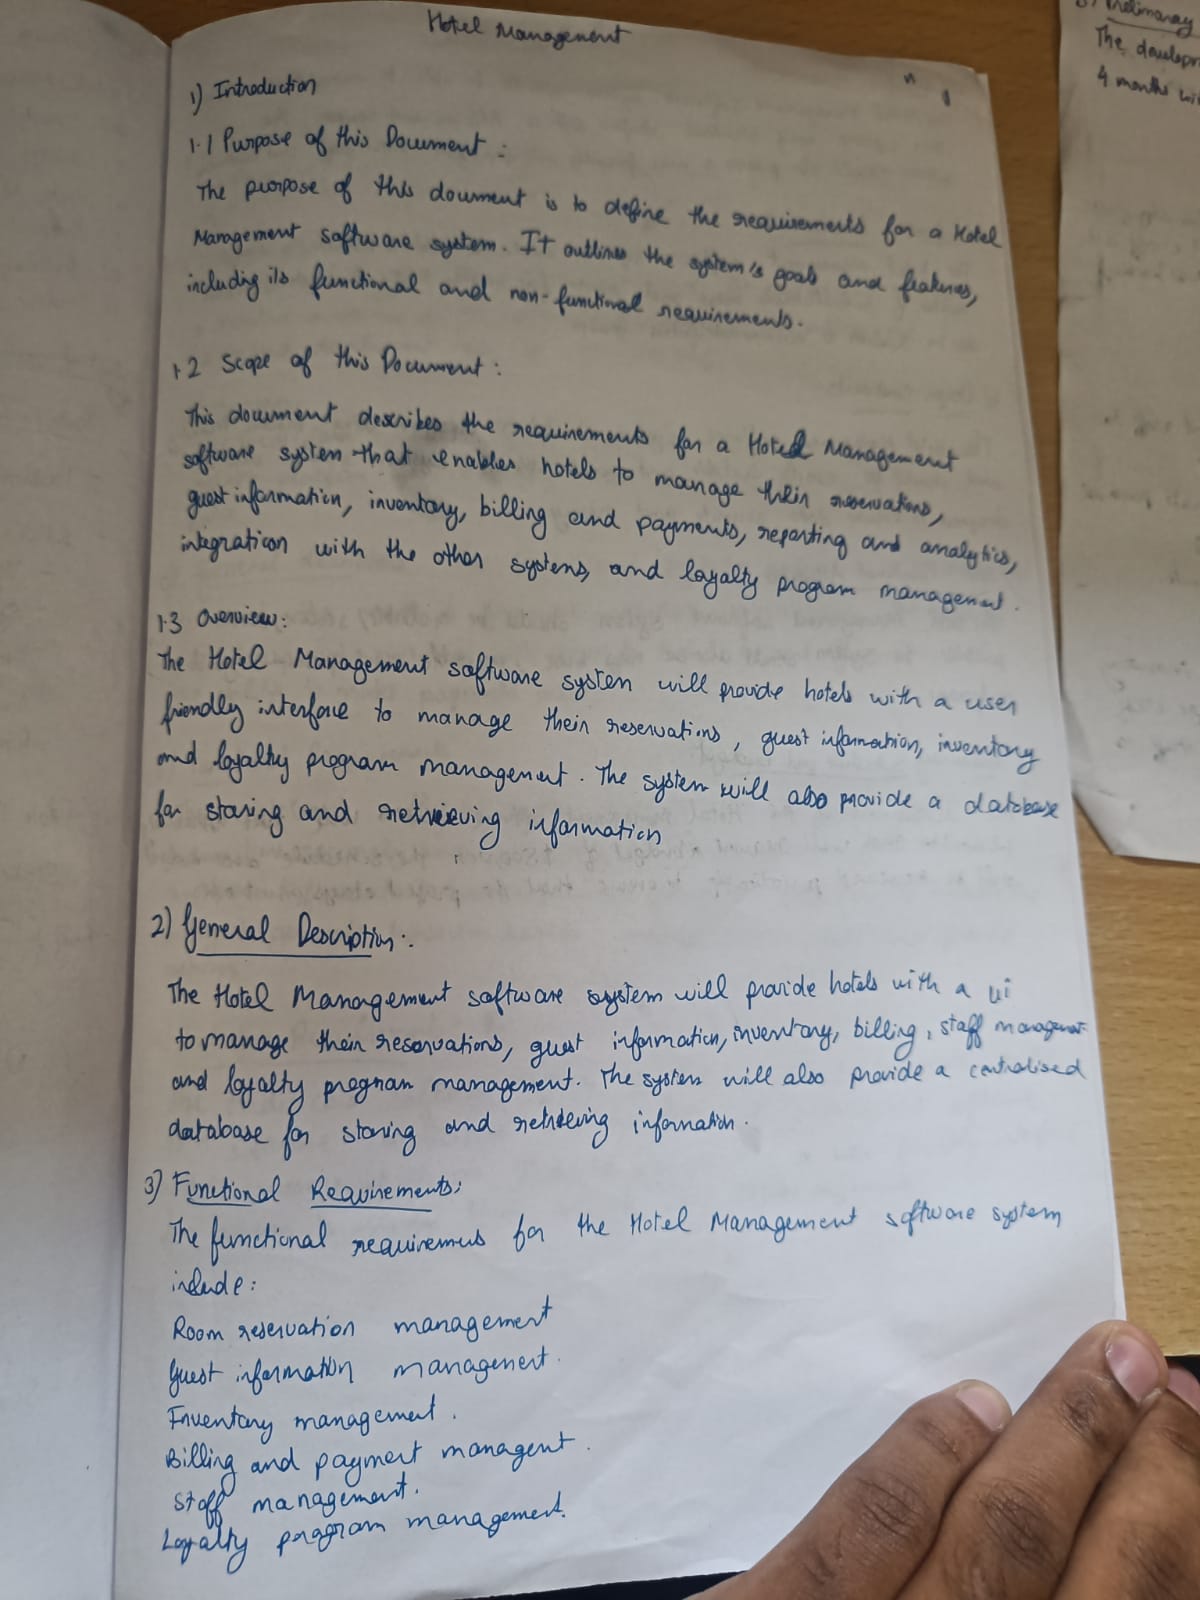 Hotel Management
1) Introduction
1.1 Purpose of this Document :
The purpose of this document is to define the requirements for a Hotel
Management software system. It outlines the system's goals and features,
including its functional and non-functional requirements.
1.2 Scope of this Document :
This document describes the requirements for a Hotel Management
software system that enables hotels to manage their reservations,
guest information, inventory, billing and payments, reporting and analytics,
integration with the other systems, and loyalty program management.
1.3 Overview:
The Hotel Management software system will provide hotels with a user
friendly interface to manage their reservations, guest information, inventory
and loyalty program management. The system will also provide a database
for storing and retrieving information
2) General Description:.
The Hotel Management software system will provide hotels with a ui
to manage their reservations, guest information, inventory, billing, staff management
and loyalty program management. The system will also provide a centralised
database for storing and retrieving information.
3) Functional Requirements:
The functional requirements for the Hotel Management software system
include:
Room reservation management
Guest information management.
Inventory management.
Billing and payment managent.
Staff management.
Loyalty program management.
Prelimanary
The
4 months